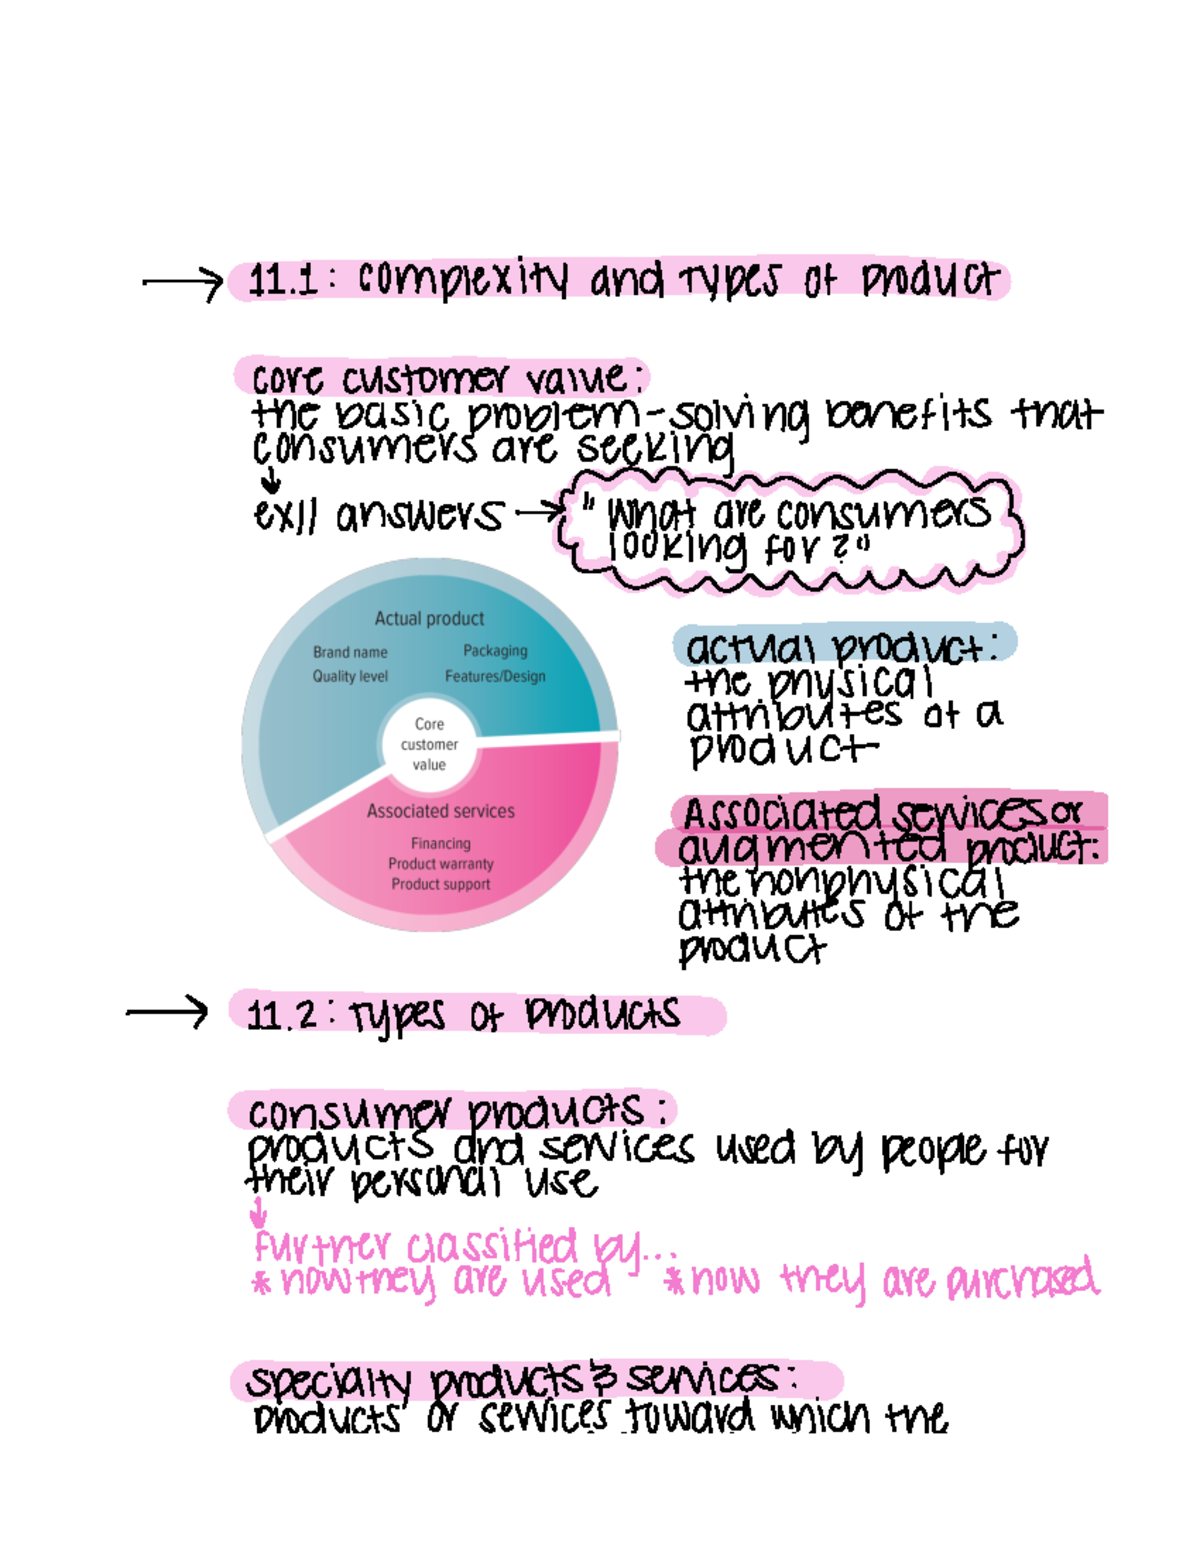 11.1: complexity and types of product
core customer value:
the basic problem-solving benefits that
consumers are seeking
ex// answers → "what are consumers
looking for?"
Actual product
Brand name Packaging
Quality level Features/Design
Core
customer
value
Associated services
Financing
Product warranty
Product support
actual product:
the physical
attributes of a
product
Associated services or
augmented product:
the nonphysical
attributes of the
product
11.2: Types of products
consumer products:
products and services used by people for
their personal use
further classified by...
* how they are used * how they are purchased
specialty products & services:
products or services toward which the